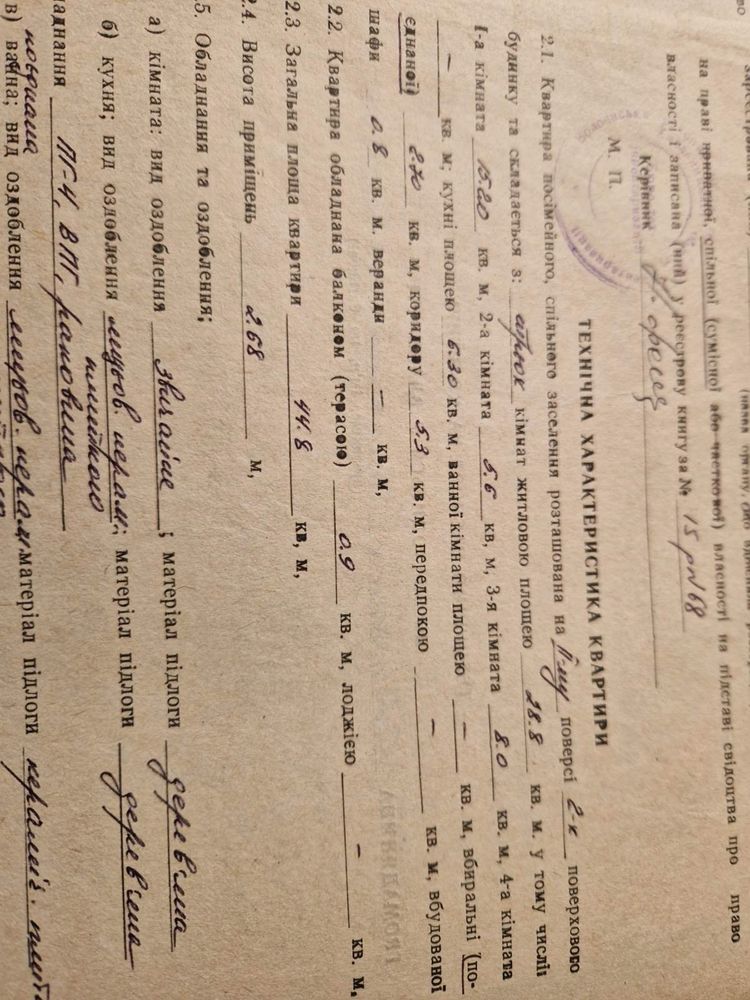 на праві приватної, спільної (сумісної або часткової) власності на підставі свідоцтва про право
власності і записана (ний) у реєстрову книгу за № 15 рN68
Керівник
М. П.
ТЕХНІЧНА ХАРАКТЕРИСТИКА КВАРТИРИ
2.1. Квартира посімейного, спільного заселення розташована на ІІ-му поверсі 2-х поверхового
будинку та складається з: трьох кімнат житловою площею 28.8 кв. м. у тому числі:
1-а кімната 15.20 кв. м, 2-а кімната 5.6 кв, м, 3-я кімната 8.0 кв. м, 4-а кімната
– кв. м; кухні площею 6.30 кв. м, ванної кімнати площею – кв. м, вбиральні (по-
єднаної) 2.70 кв. м, коридору 5.3 кв. м, передпокою – кв. м, вбудованої
шафи 0.8 кв. м. веранди – кв. м,
2.2. Квартира обладнана балконом (терасою) 0.9 кв. м, лоджією – кв. м.
2.3. Загальна площа квартири 44.8 кв, м,
2.4. Висота приміщень 2.68 м,
5. Обладнання та оздоблення;
а) кімната: вид оздоблення звичайне; матеріал підлоги дерев'яна
б) кухня; вид оздоблення матеріал підлоги дерев'яна
аднання ПГ-4, ВПГ, раковина
в) ванна; вид оздоблення матеріал підлоги